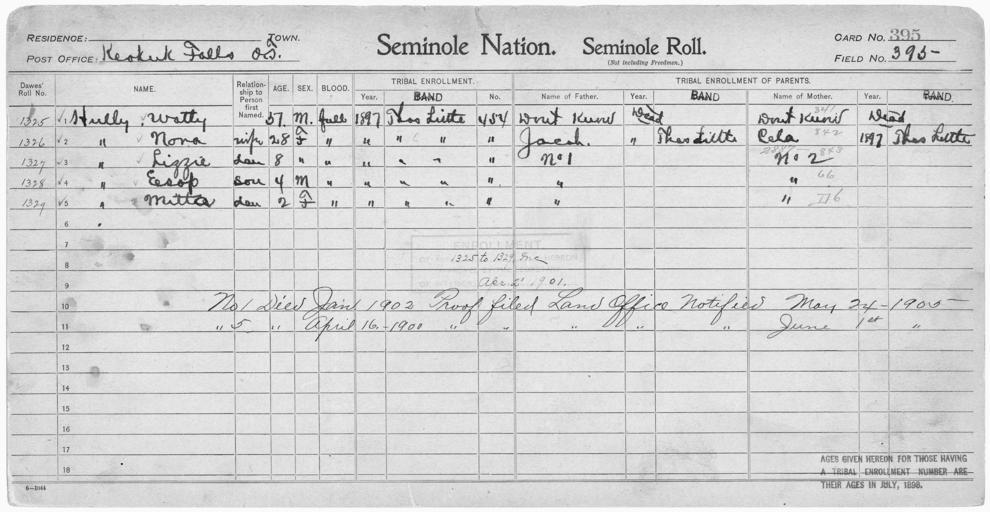 RESIDENCE: TOWN.
POST OFFICE: Keokuk Falls O.T.
Seminole Nation. Seminole Roll.
(Not including Freedmen.)
CARD NO. 395
FIELD NO. 395
Dawes' Roll No. NAME. Relationship to Person first Named. AGE. SEX. BLOOD. TRIBAL ENROLLMENT. TRIBAL ENROLLMENT OF PARENTS.
Year. BAND No. Name of Father. Year. BAND Name of Mother. Year. BAND
1325 √1 Hully Watty 37 M. full 1897 Thos Little 454 Dont Know Dead Dont Know 341 Dead
1326 √2 " Nora wife 28 F " " " " " Jacob. " Thos Little Cela 342 1897 Thos Little
1327 √3 " Lizzie dau 8 " " " " " " No 1 No 2 343
1328 √4 " Esop son 4 M " " " " " " " 66
1329 √5 " Mitta dau 2 F " " " " " " " II6
6
7
ENROLLMENT
8 1325 to 1329, Inc
9 Apr 2 1901.
10 No 1 Died Jan 1902 Proof filed Land Office Notified May 24-1905
11 " 5 " April 16-1900 " " " " " June 1st "
12
13
14
15
16
17
18
AGES GIVEN HEREON FOR THOSE HAVING
A TRIBAL ENROLLMENT NUMBER ARE
THEIR AGES IN JULY, 1898.
6—1044